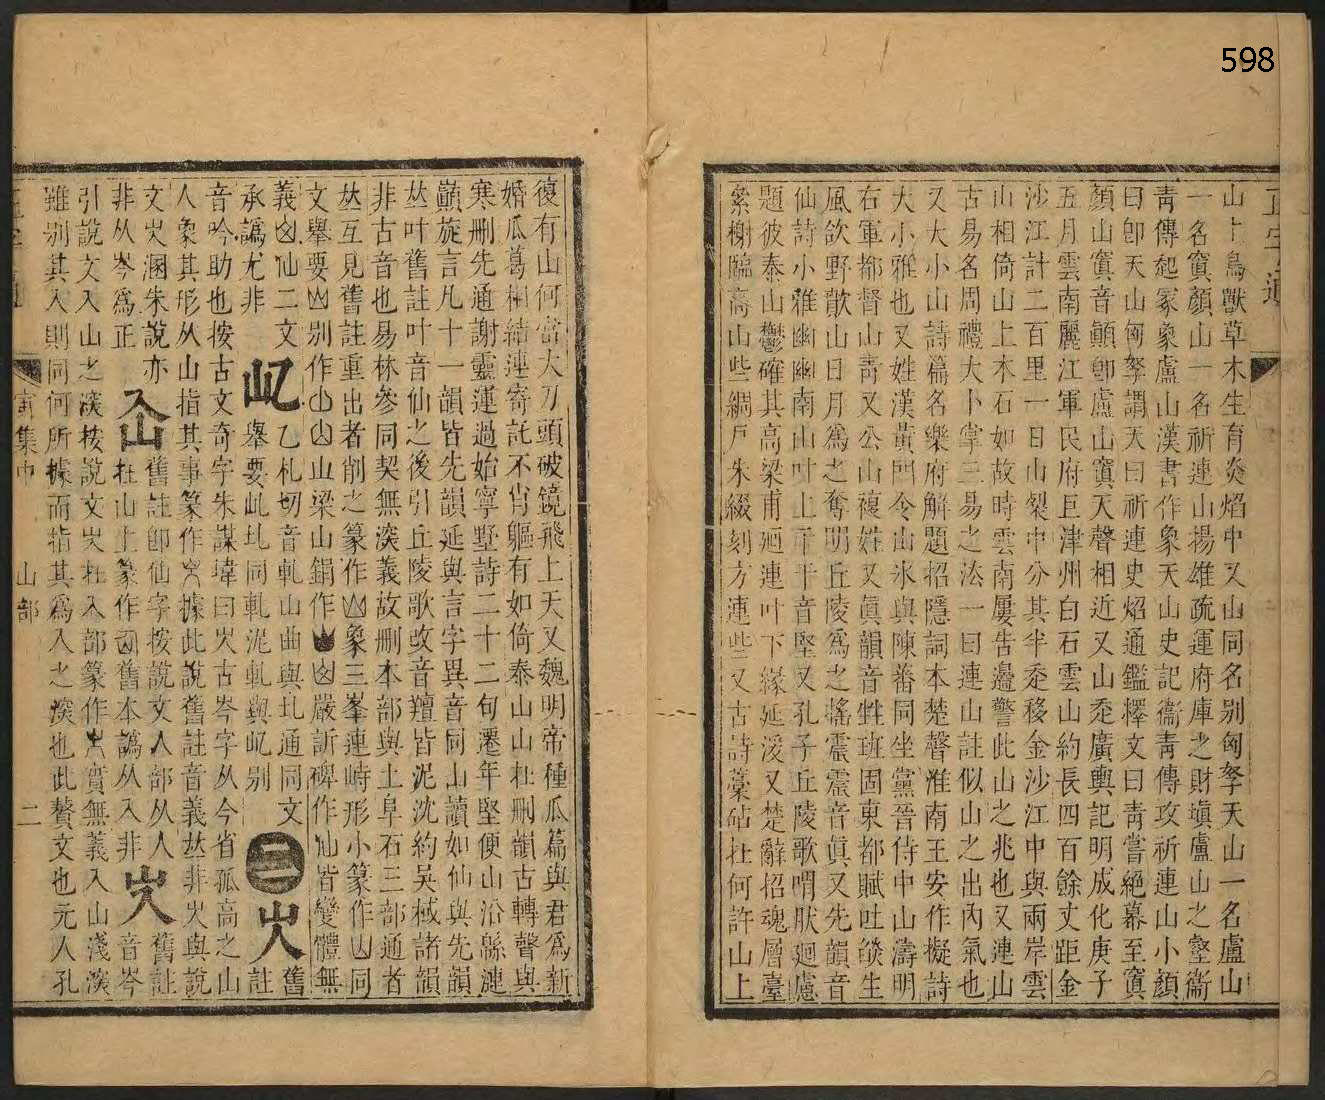 598
正字通
山上鳥獸草木生育炎焰中又山同名别匈孥天山一名盧山
一名寘顏山一名祈連山揚雄疏運府庫之財塡盧山之壑衞
靑傳起冢象盧山漢書作象天山史記衞靑傳攻祈連山小顏
曰卽天山匈孥謂天曰祈連史炤通鑑釋文曰靑嘗絕幕至寘
顏山寘音顚卽盧山寘天聲相近又山厺廣輿記明成化庚子
五月雲南麗江軍民府巨津州白石雲山約長四百餘丈距金
沙江計二百里一日山裂中分其半厺移金沙江中與兩岸雲
山相倚山上木石如故時雲南屢吿邊警此山之兆也又連山
古易名周禮大卜掌三易之法一曰連山註似山之出內氣也
又大小山詩篇名樂府解題招隱詞本楚聲淮南王安作擬詩
大小雅也又姓漢黃門令山冰與陳蕃同坐黨晉侍中山濤明
右軍都督山靑又公山複姓又眞韻音甡班固東都賦吐燄生
風欱野歕山日月爲之奪明丘陵爲之搖震震音眞又先韻音
仙詩小雅幽幽南山叶上干干音堅又孔子丘陵歌喟肰廻慮
題彼泰山鬱確其高梁甫廻連叶下緣延湲又楚辭招魂層臺
絫榭臨高山些網戸朱綴刻方連些又古詩藁砧在何許山上
復有山何當大刀頭破鏡飛上天又魏明帝種瓜篇與君爲新
婚瓜葛相結連寄託不肖軀有如倚泰山山杜刪韻古轉聲與
寒刪先通謝靈運過始寧墅詩二十二句遷年堅便山沿緜漣
巓旋言凡十一韻皆先韻延與言字異音同山讀如仙與先韻
𠀤叶舊註叶音仙之後引丘陵歌攺音羶皆泥沈約吳棫諸韻
非古音也易林參同契無深義故刪本部與土阜石三部通者
𠀤互見舊註重出者削之篆作山象三峯連峙形小篆作山同
文舉要凶别作山凶山梁山鋗作山凶嚴訢碑作仙皆變體無
義凶仙二文
承譌尤非
屺
乙札切音軋山曲與圠通同文
舉要屺圠同軋泥軋與屺别
三
㞥
舊註
音吟助也按古文奇字朱謀㙔曰㞥古岑字从今省孤高之山
人象其形从山指其事篆作㞥據此說舊註音義𠀤非㞥與說
文㞥溷朱說亦
非从岑爲正
仚
舊註卽仙字按說文人部从人
在山上篆作仚舊本譌从入非
㞥
舊註
音岑
引說文入山之深按說文㞥在入部篆作㞥實無義入山淺深
雖别其入則同何所據而指其爲入之深也此贅文也元人孔
寅集中
山部
二